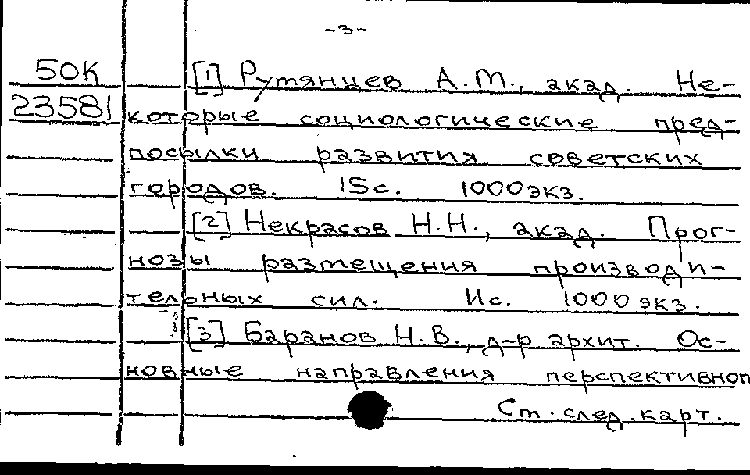 -3-
50К [1] Румянцев А.М., акад. Не-
23581 которые социологические пред-
посылки развития советских
городов. 15с. 1000экз.
[2] Некрасов Н.Н., акад. Прог-
нозы размещения производи-
тельных сил. 11с. 1000экз.
[3] Баранов Н.В., д-р архит. Ос-
новные направления перспективног
Ст. след. карт.